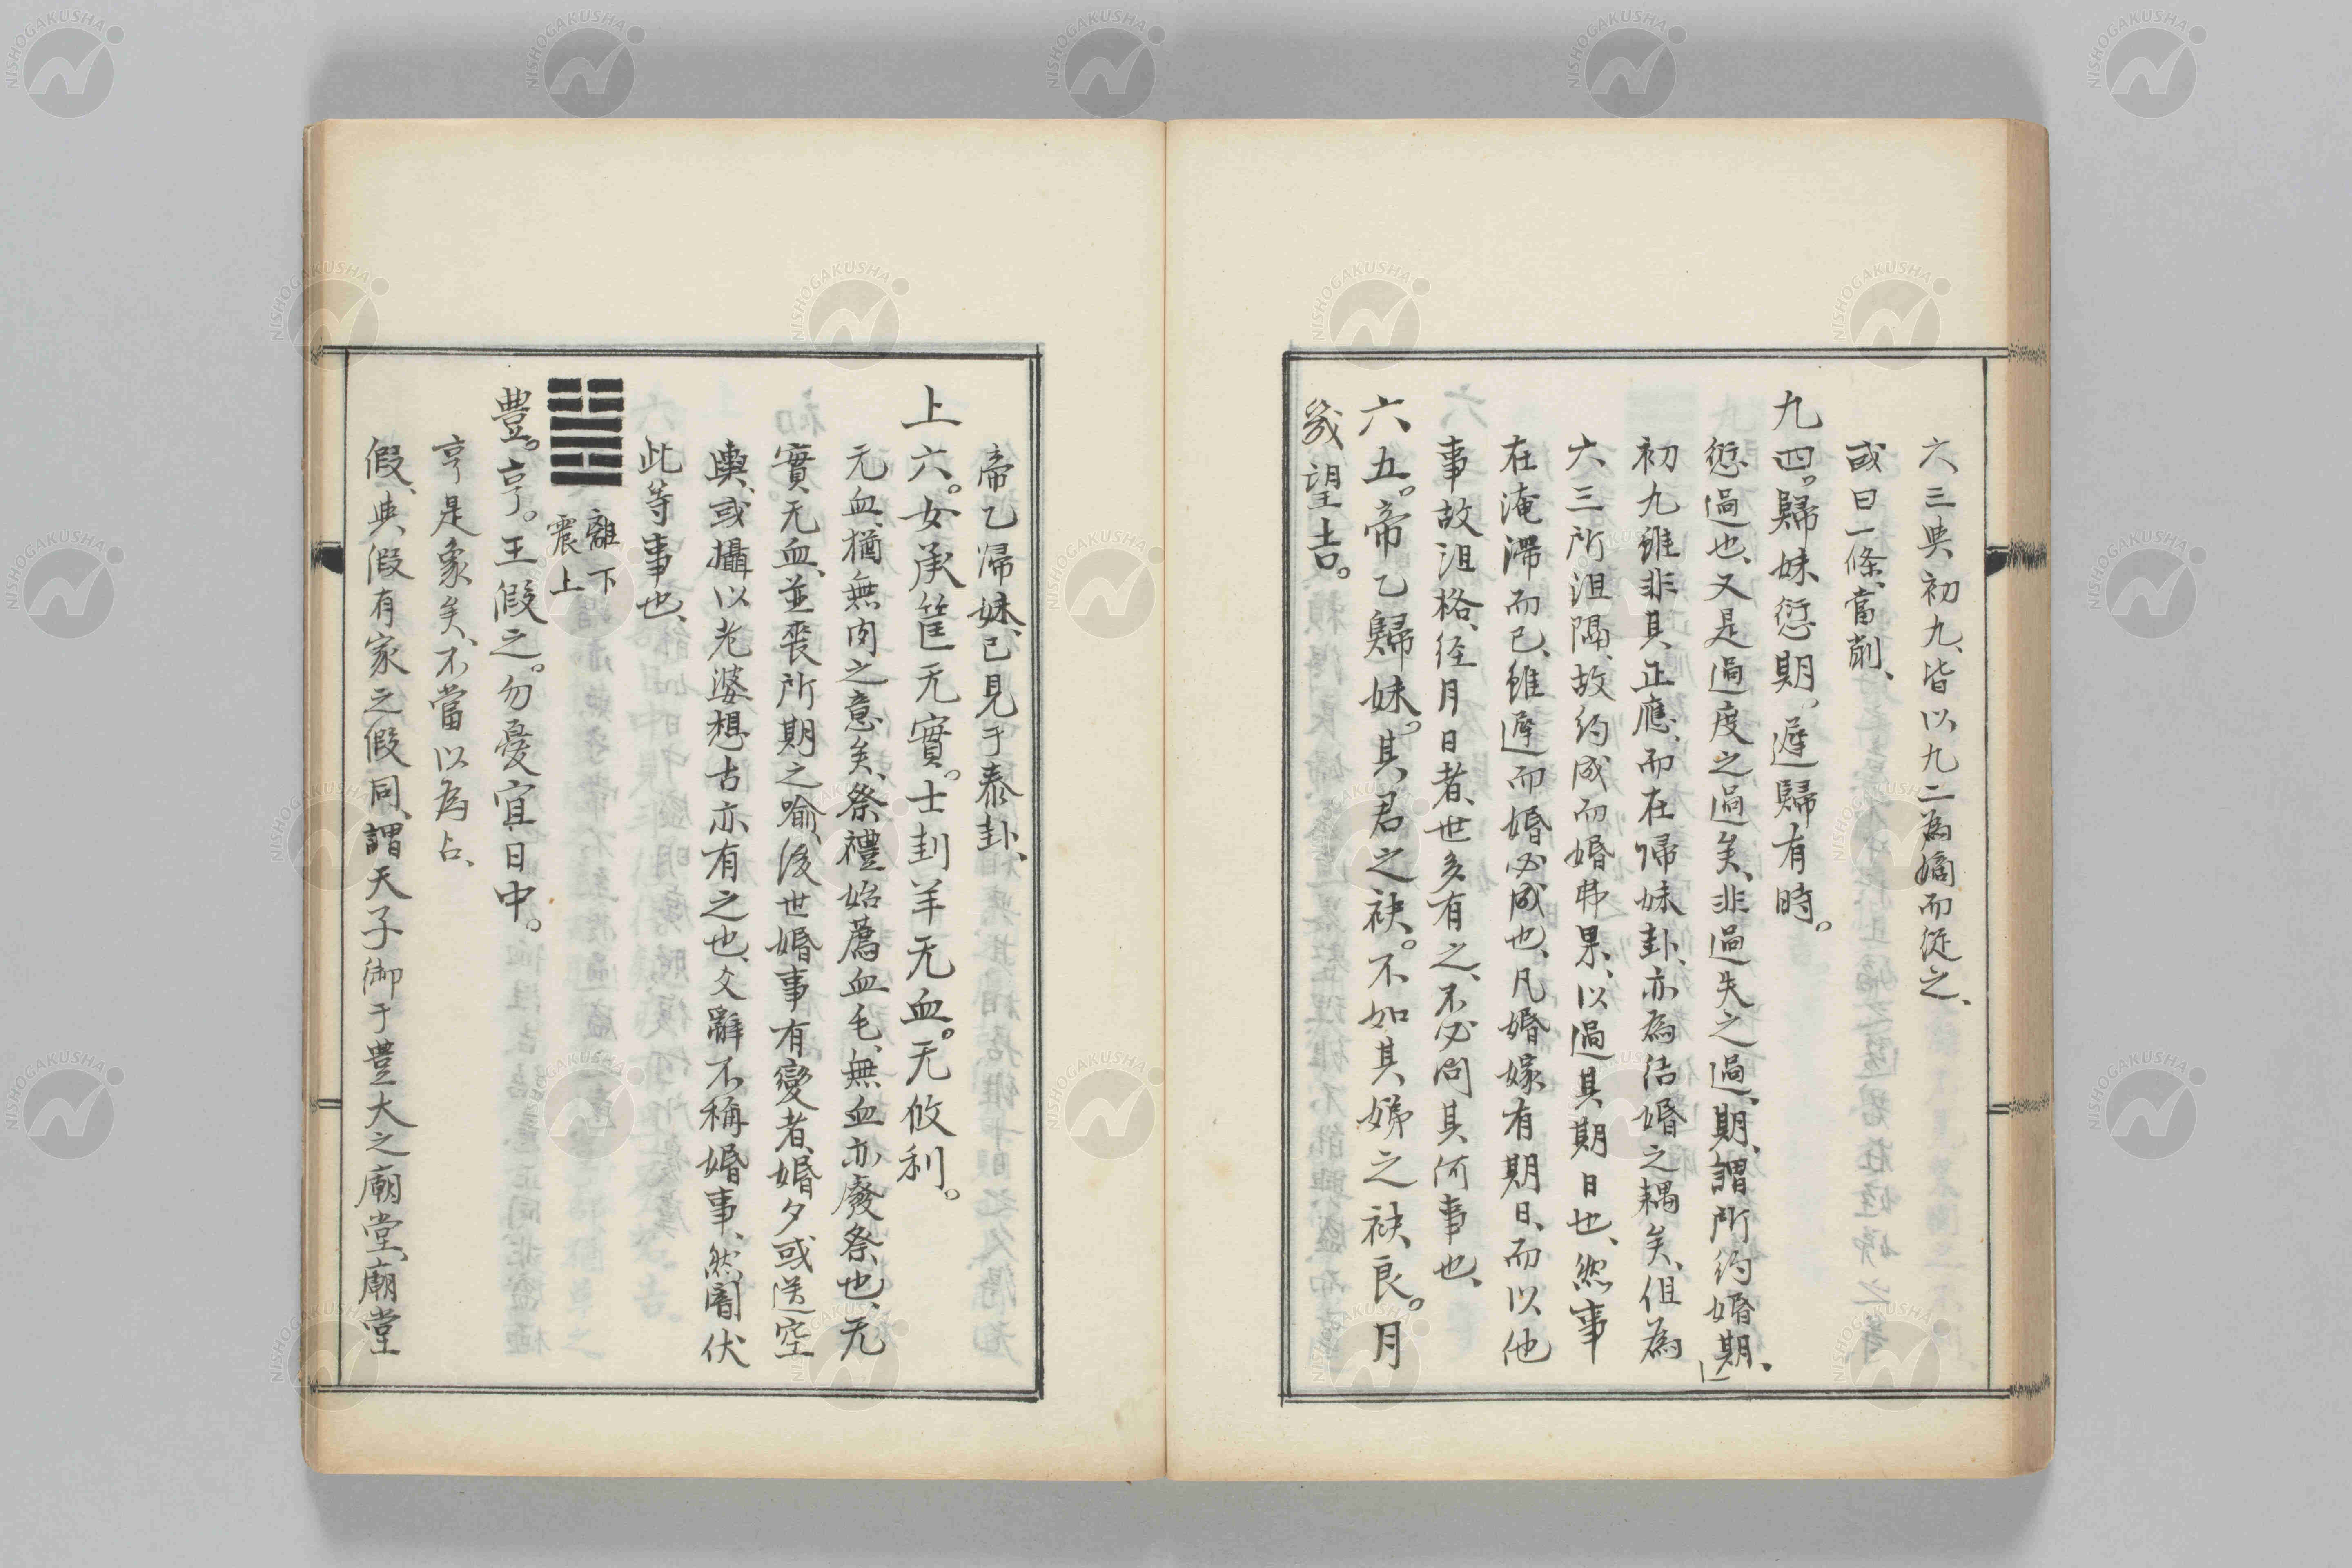 六三與初九、皆以九二為嫡而從之、
或曰一條、當削、
九四。歸妹愆期。遲歸有時。
愆過也、又是過度之過矣、非過失之過、期、謂所約婚期、
初九雖非其正應、而在帰妹卦、亦為結婚之耦矣、但為
六三所沮隔、故約成而婚弗果、以過其期日也、然事
在淹滞而已、雖遲而婚必成也、凡婚嫁有期日、而以他
事故沮格、経月日者、世多有之、不必問其何事也、
六五。帝乙歸妹。其君之袂。不如其娣之袂良。月
幾望吉。
帝乙帰妹、已見于泰卦、
上六。女承筐无實。士刲羊无血。无攸利。
无血、猶無肉之意矣、祭禮始薦血毛、無血亦廢祭也、无
實、无血、並喪所期之喻、後世婚事有變者、婚夕或送空
輿、或攝以老婆、想古亦有之也、爻辭不稱婚事、然闇伏
此等事也、
離下
震上
豊。亨。王假之。勿憂宜日中。
亨是象矣、不當以為占、
假、與假有家之假同、謂天子御于豊大之廟堂、廟堂
NISHOGAKUSHA